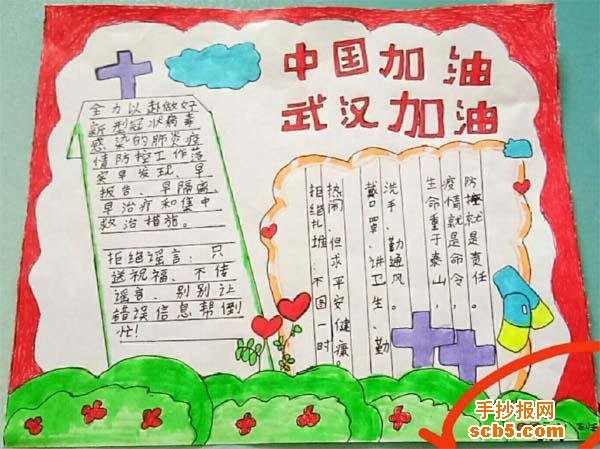 中国加油
武汉加油
全力以赴做好
新型冠状病毒
感染的肺炎疫
情防控工作落
实早发现、早
报告、早隔离
早治疗和集中
救治措施。
拒绝谣言:只
送祝福、不传
谣言、别别让
错误信息帮倒
忙!
拒绝扎堆:不图一时
热闹、但求平安健康。
戴口罩、讲卫生、勤
洗手、勤通风。
生命重于泰山,
疫情就是命令,
防控就是责任。
手抄报网
scb5.com